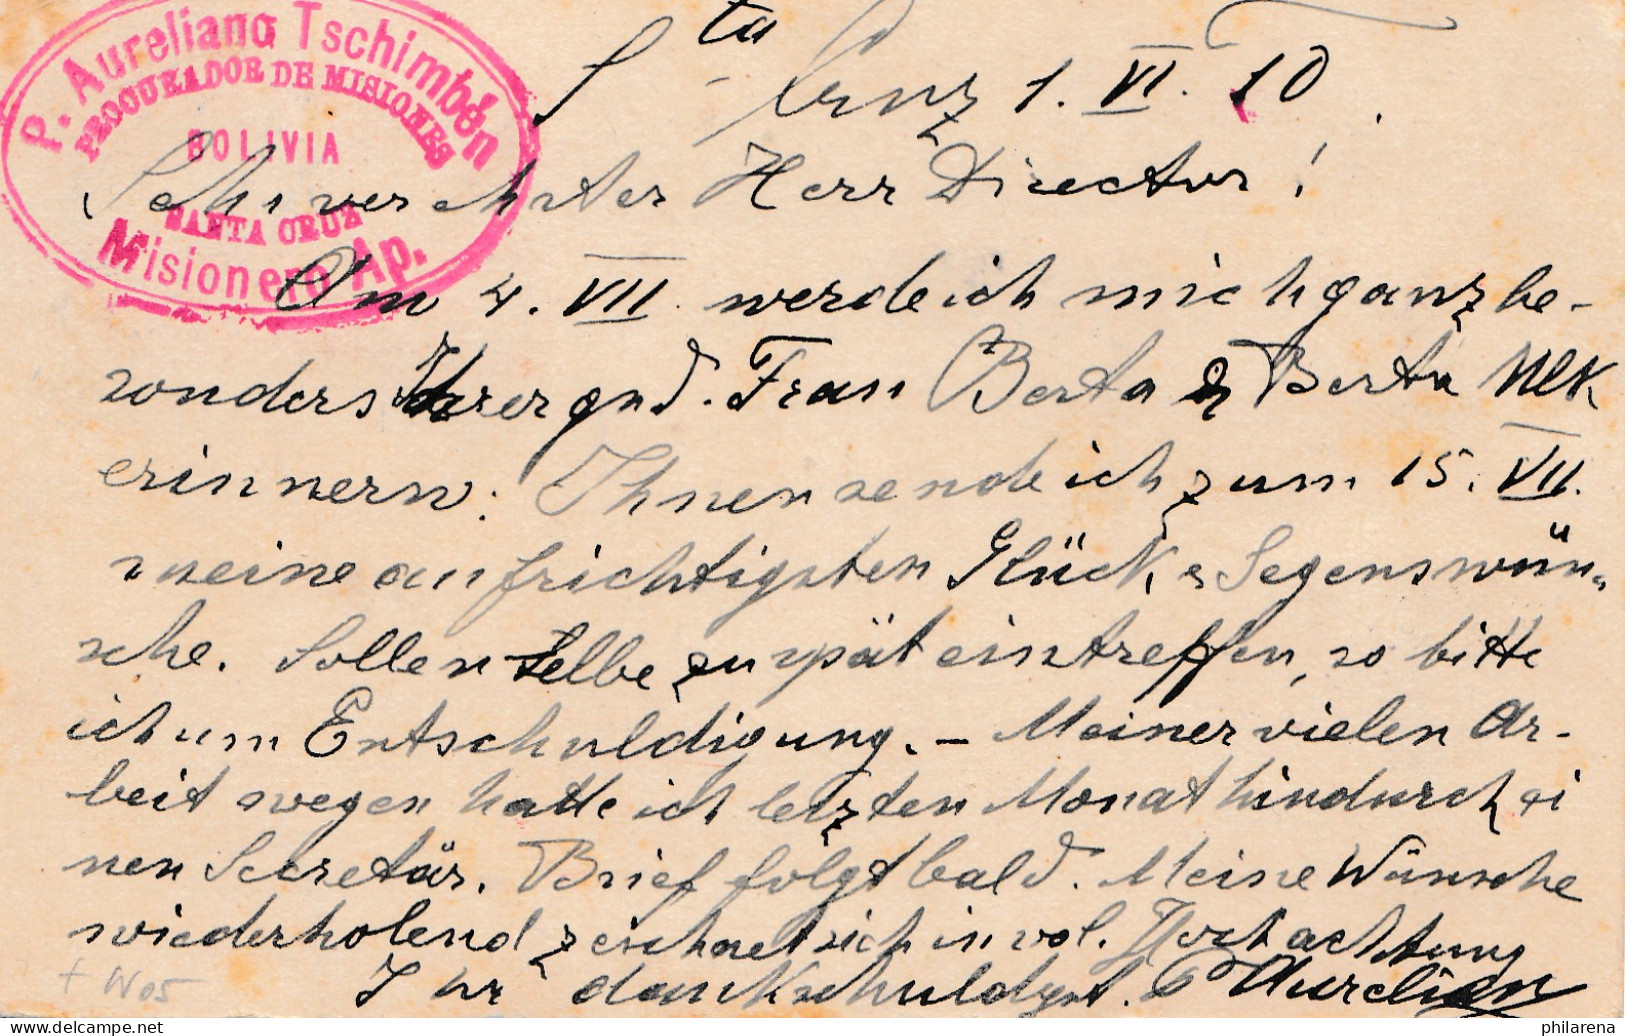 P. Aureliano Tschimbón
PROCURADOR DE MISIONES
BOLIVIA
SANTA CRUZ
Misionero Ap.
Sta Cruz 1. VI. 10.
Sehr verehrter Herr Director!
Am 4. VII werde ich mich ganz be-
sonders Ihrer gnd. Frau Berta & Berta
erinnern. Ihnen sende ich zum 15. VII.
meine aufrichtigsten Glück & Segenswün-
sche. Sollen selbe zu spät eintreffen, so bitte
ich um Entschuldigung. – Meiner vielen Ar-
beit wegen hatte ich letzten Monat hindurch ei
nen Secretär. Brief folgt bald. Meine Wünsche
wiederholend zeichnet sich in vol. Hochachtung
Ihr dankschuldgst. P Aurelian
+ W05
philarena